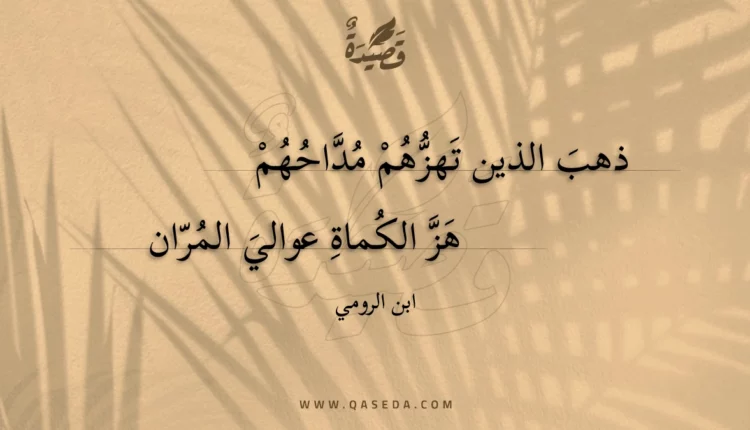 قَصِيدَةٌ
ذهبَ الذين تَهزُّهُمْ مُدَّاحُهُمْ
هَزَّ الكُماةِ عواليَ المُرّان
ابن الرومي
WWW.QASEDA.COM